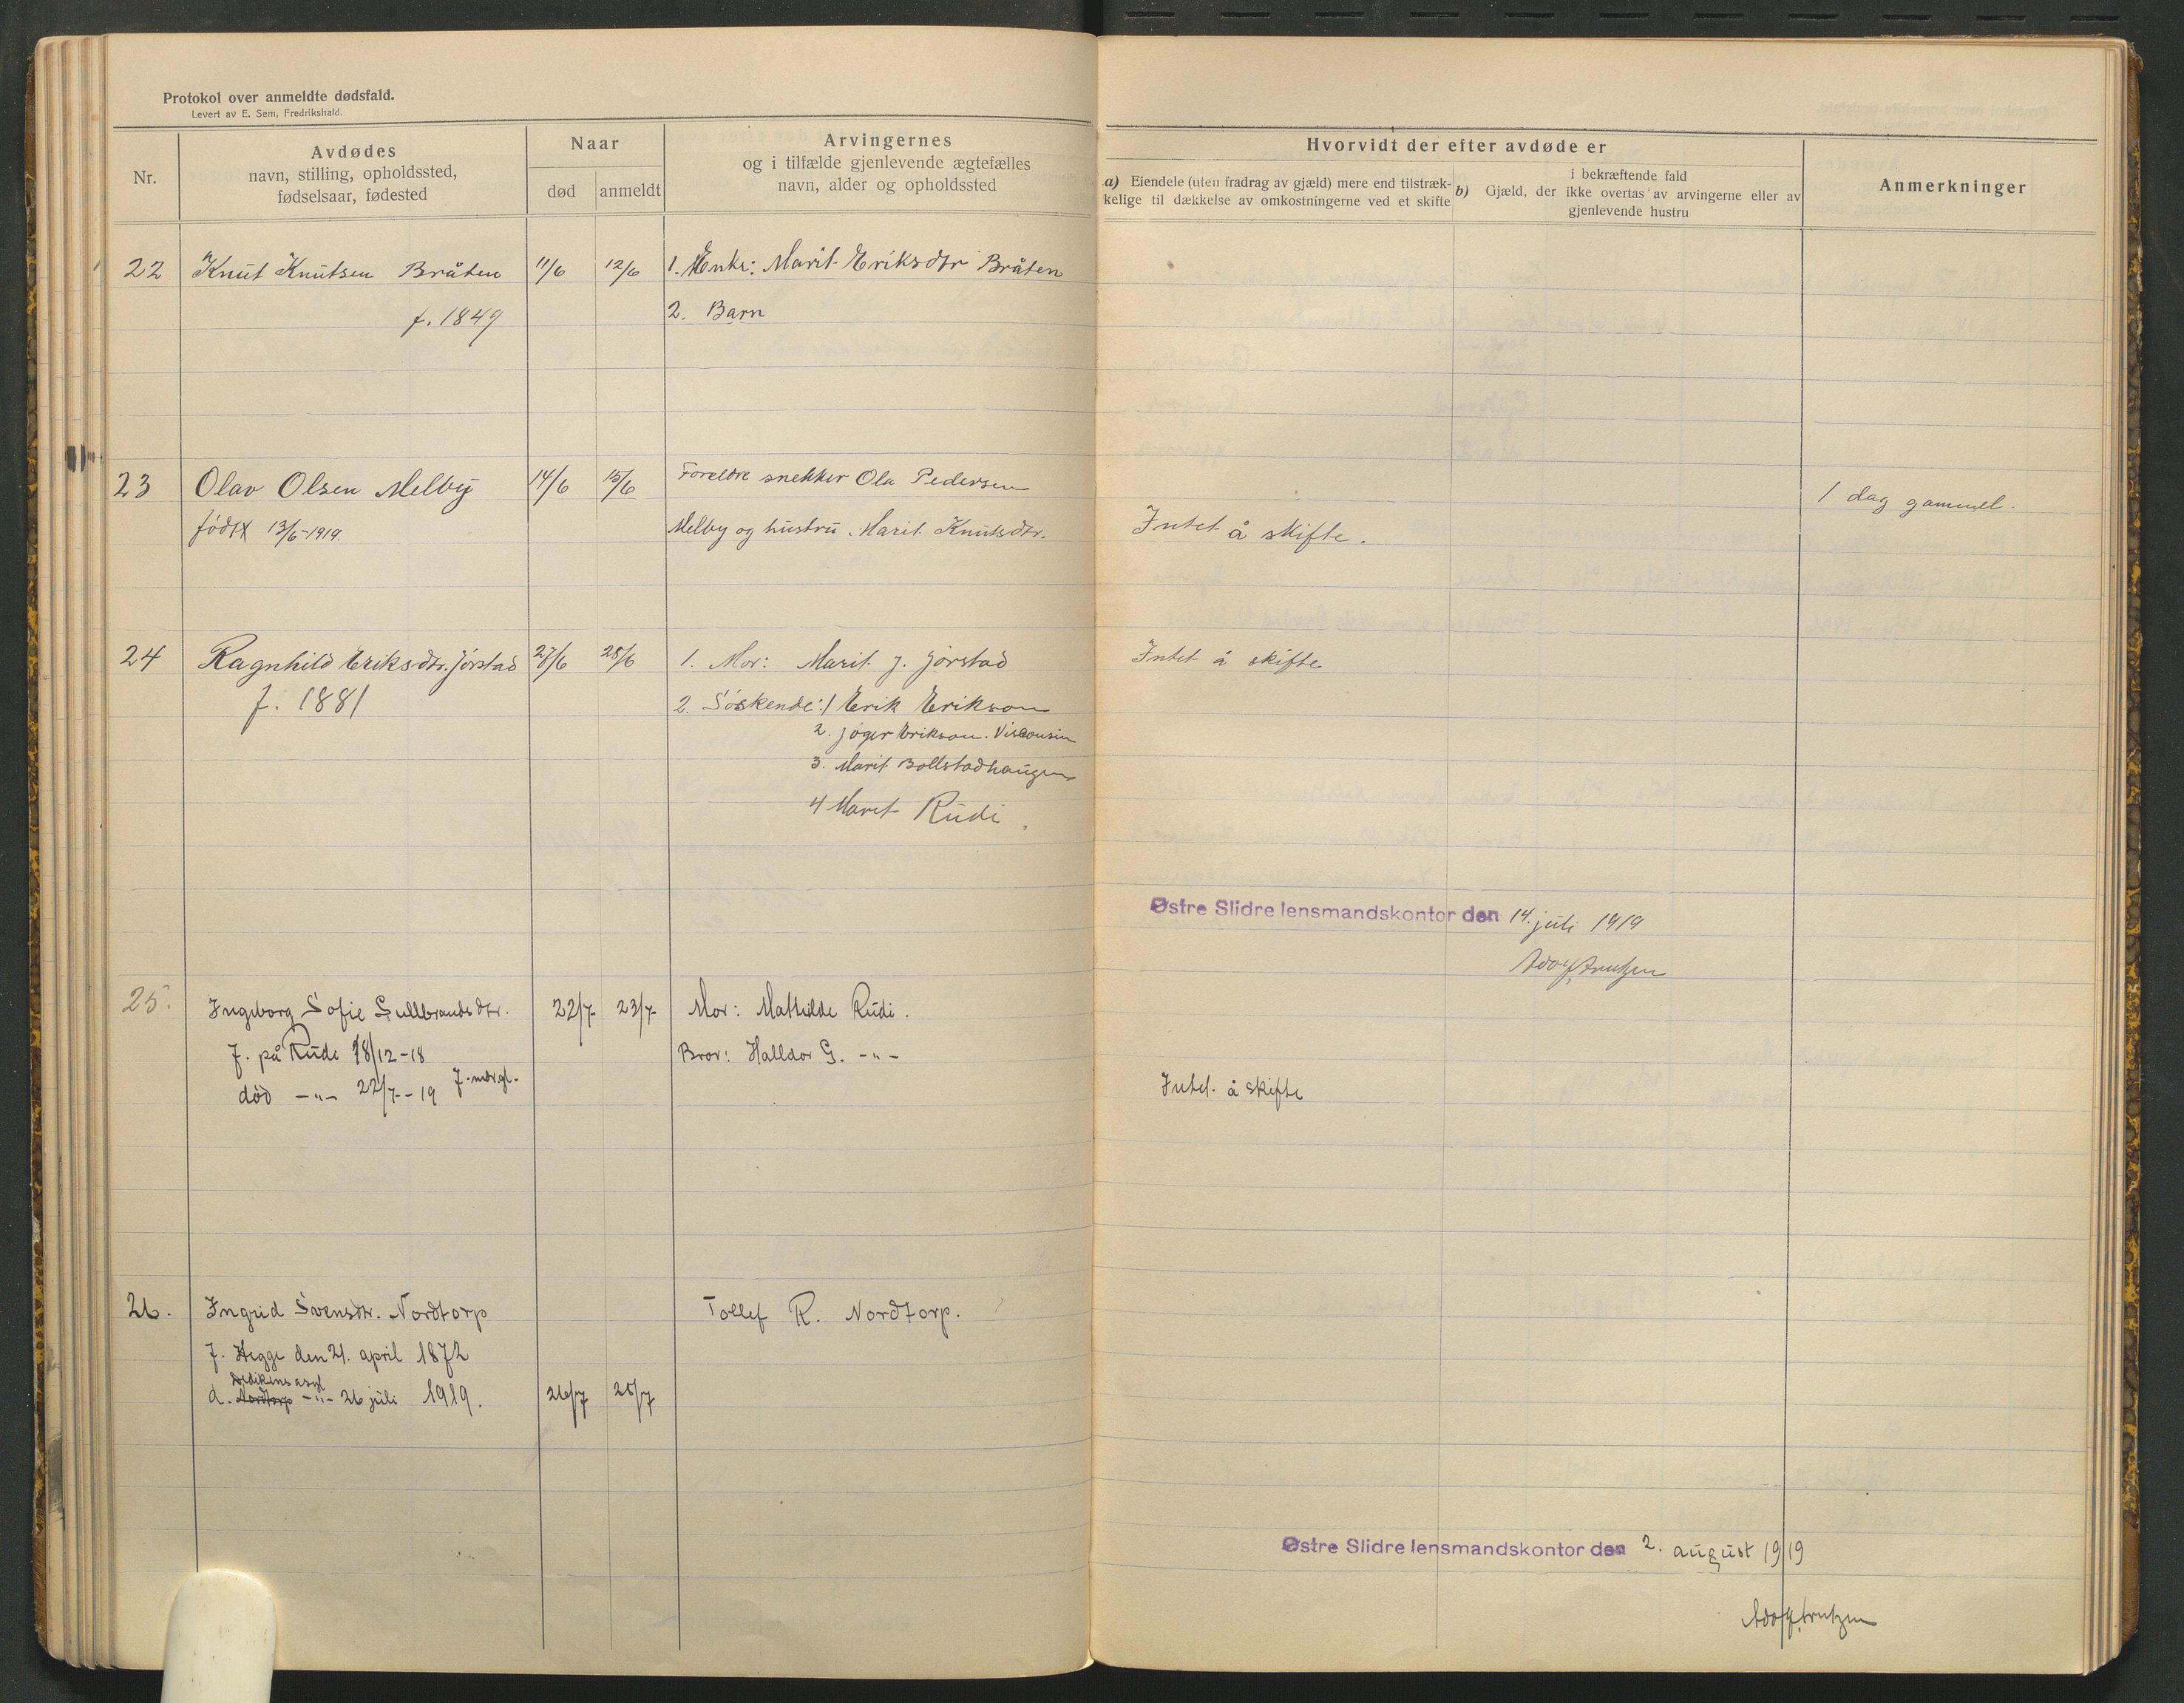 Protokol over anmeldte dødsfald.
Levert av E. Sem, Fredrikshald.
Nr.
Avdødes
navn, stilling, opholdssted,
fødselsaar, fødested
Naar
død
anmeldt
Arvingernes
og i tilfælde gjenlevende ægtefælles
navn, alder og opholdssted
Hvorvidt der efter avdøde er
a) Eiendele (uten fradrag av gjæld) mere end tilstræk-
kelige til dækkelse av omkostningerne ved et skifte
b) Gjæld, der i bekræftende fald
ikke overtas av arvingerne eller av
gjenlevende hustru
Anmerkninger
22 Knut Knutsen Bråten 11/6 12/6 1. Enke: Marit Eriksdtr Bråten
f. 1849 2. Barn
23 Olav Olsen Melby 14/6 15/6 Foreldre snekker Ola Pedersen 1 dag gammel.
født 13/6-1919. Melby og hustru Marit Knutsdtr. Intet å skifte.
24 Ragnhild Eriksdtr. Jørstad 27/6 28/6 1. Mor: Marit J. Jørstad Intet å skifte
f. 1881 2. Søskende: 1 Erik Erikson
2. Jøger Erikson. Visconsin
3. Marit Bollstadhaugen
4 Marit Rudi.
Østre Slidre lensmandskontor den 14. juli 1919
25. Ingeborg Sofie Gullbrandsdtr. 22/7- 23/7- Mor: Mathilde Rudi.
f. på Rudi 18/12-18 Bror: Halldor G. -"-
død -"- 22/7--19 7. mdr. gl. Intet å skifte
26. Ingrid Svensdtr. Nordtorp Tollef R. Nordtorp.
f. Hegge den 21. april 1872
Dedikens asyl
d. Nordtorp -"- 26 juli 1919. 26/7 28/7
Østre Slidre lensmandskontor den 2. august 1919